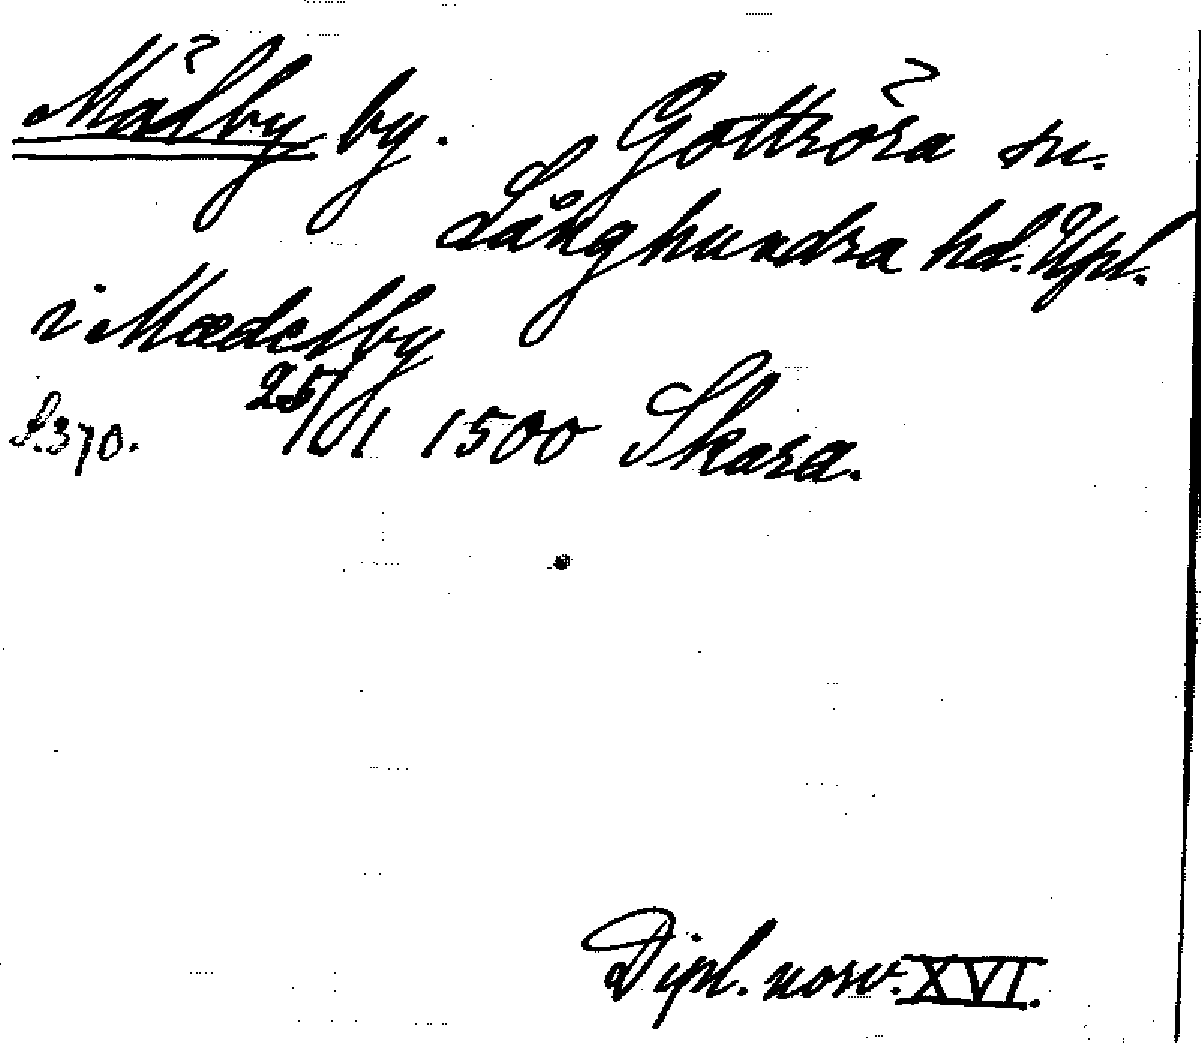 Mälby by. Gottröra sn.
Långhundra hd. Upl.
i Mædelby
S. 370. 25/1 1500 Skara.
Dipl. norv. XVI.